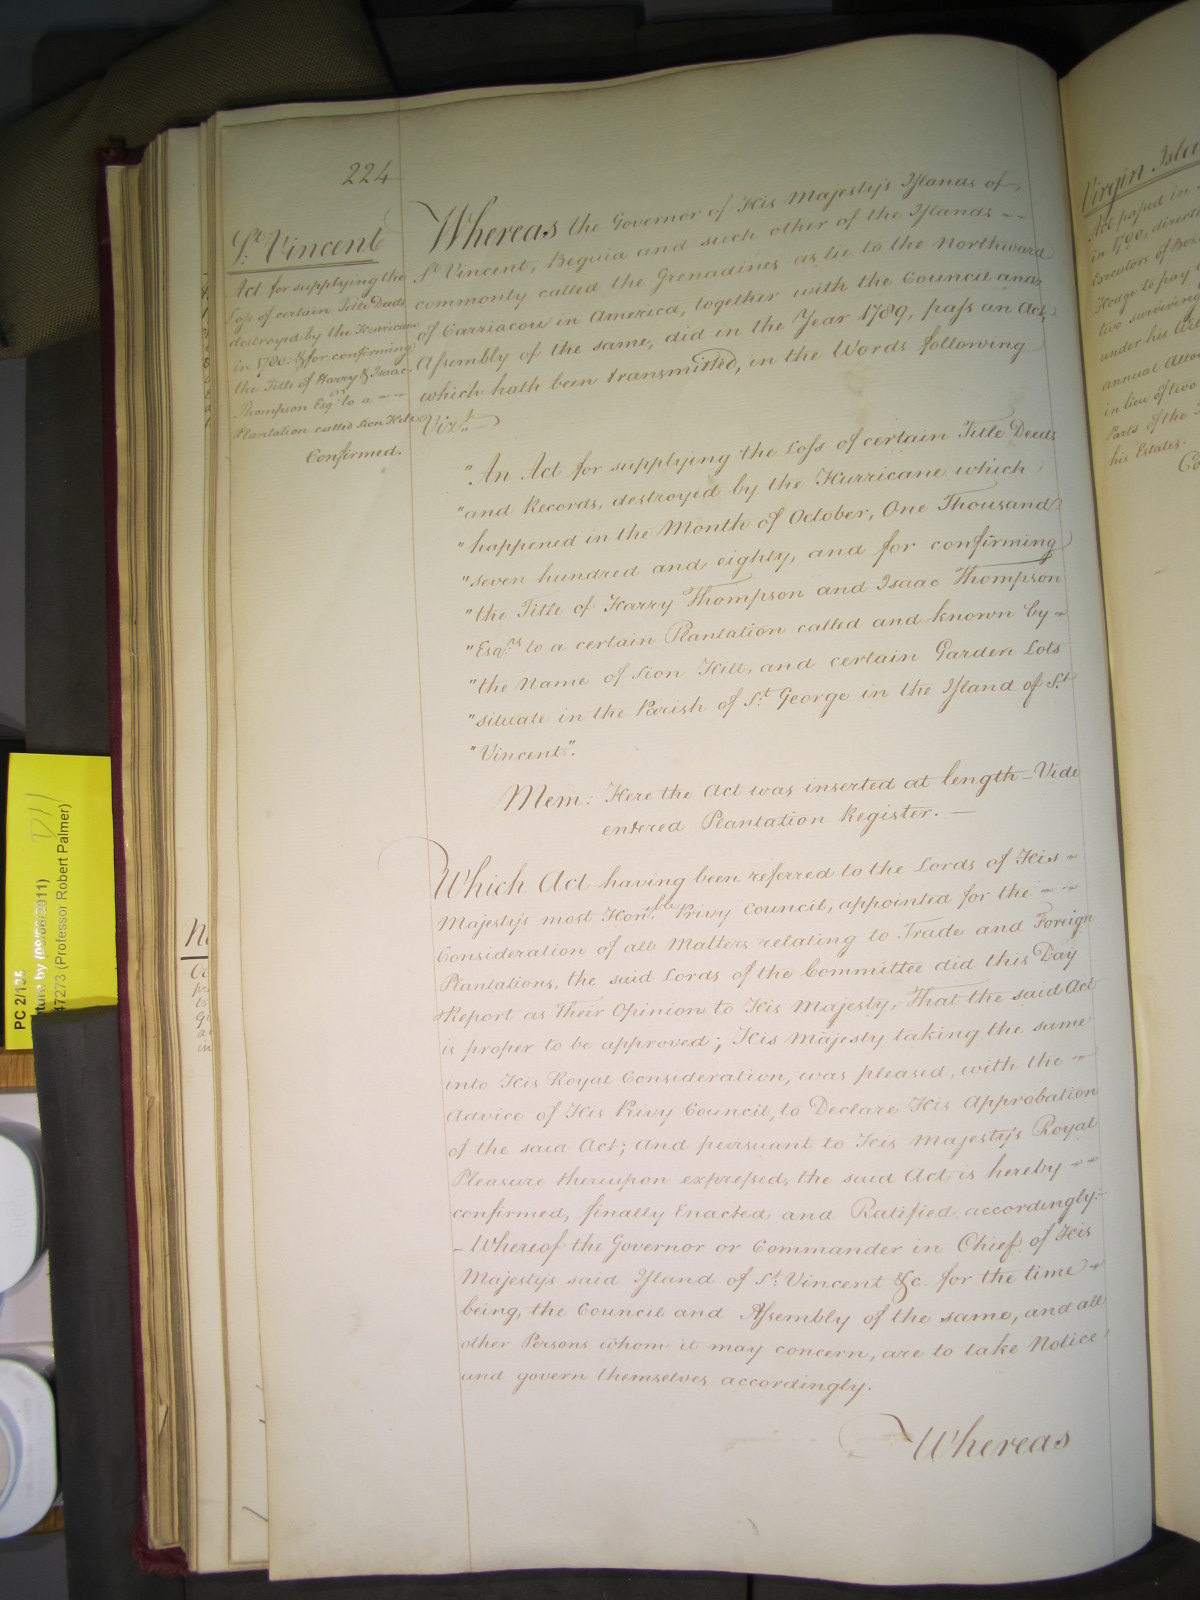 224
St. Vincent
Act for supplying the
Loss of certain Title Deeds
destroyed by the Hurricane
in 1780: & for confirming
the Title of Harry & Isaac
Thompson Esqrs. to a
Plantation called Sion Hill
Confirmed.
Whereas the Governor of His Majesty's Islands of
St. Vincent, Bequia and such other of the Islands
commonly called the Grenadines as lie to the Northward
of Carriacou in America, together with the Council and
Assembly of the same, did in the Year 1789, pass an Act,
which hath been transmitted, in the Words following
Vizt.
"An Act for supplying the Loss of certain Title Deeds
"and Records, destroyed by the Hurricane which
"happened in the Month of October, One Thousand
"seven hundred and eighty, and for confirming
"the Title of Harry Thompson and Isaac Thompson
"Esqrs. to a certain Plantation called and known by
"the Name of Sion Hill, and certain Garden Lots
"situate in the Parish of St. George in the Island of St.
"Vincent".
Mem: Here the Act was inserted at length - Vide
entered Plantation Register. —
Which Act having been referred to the Lords of His
Majesty's most Honble. Privy Council, appointed for the
Consideration of all Matters relating to Trade and Foreign
Plantations, the said Lords of the Committee did this Day
Report as Their Opinion to His Majesty, That the said Act
is proper to be approved; His Majesty taking the same
into His Royal Consideration, was pleased, with the
Advice of His Privy Council, to Declare His Approbation
of the said Act; And pursuant to His Majesty's Royal
Pleasure thereupon expressed, the said Act is hereby
confirmed, finally Enacted and Ratified accordingly:
- Whereof the Governor or Commander in Chief of His
Majesty's said Island of St. Vincent &c. for the time
being, the Council and Assembly of the same, and all
other Persons whom it may concern, are to take Notice
and govern themselves accordingly.
Whereas
Virgin Isla
Act passed in
in 1790, directi
Executors of
to pay
two surviving
under his
annual
in lieu of two
Parts of the
his Estates.
Co
PC 2/135
(09/06/2011)
47273 (Professor Robert Palmer)
D11